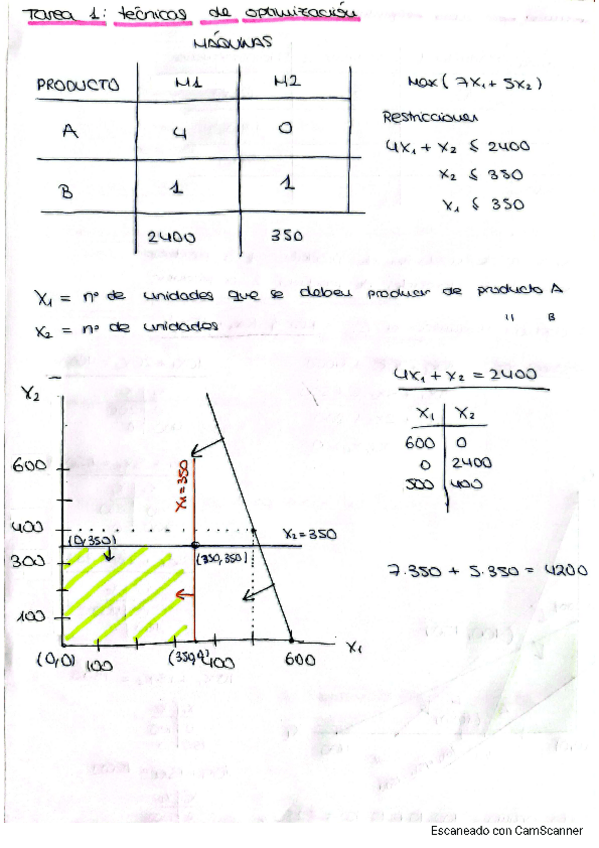 Tarea 1: técnicas de optimización
MÁQUINAS
PRODUCTO M1 M2
A 4 0
B 1 1
2400 350
Max ( 7X₁ + 5X₂ )
Restricciones
4X₁ + X₂ ≤ 2400
X₂ ≤ 350
X₁ ≤ 350
X₁ = nº de unidades que se deben producir de producto A
X₂ = nº de unidades " B
4X₁ + X₂ = 2400
X₁ X₂
600 0
0 2400
500 400
7·350 + 5·350 = 4200
X₂
600
400
300
100
(0,350)
X₁=350
X₂=350
(350,350)
(0,0) 100 400 600 X₁
Escaneado con CamScanner